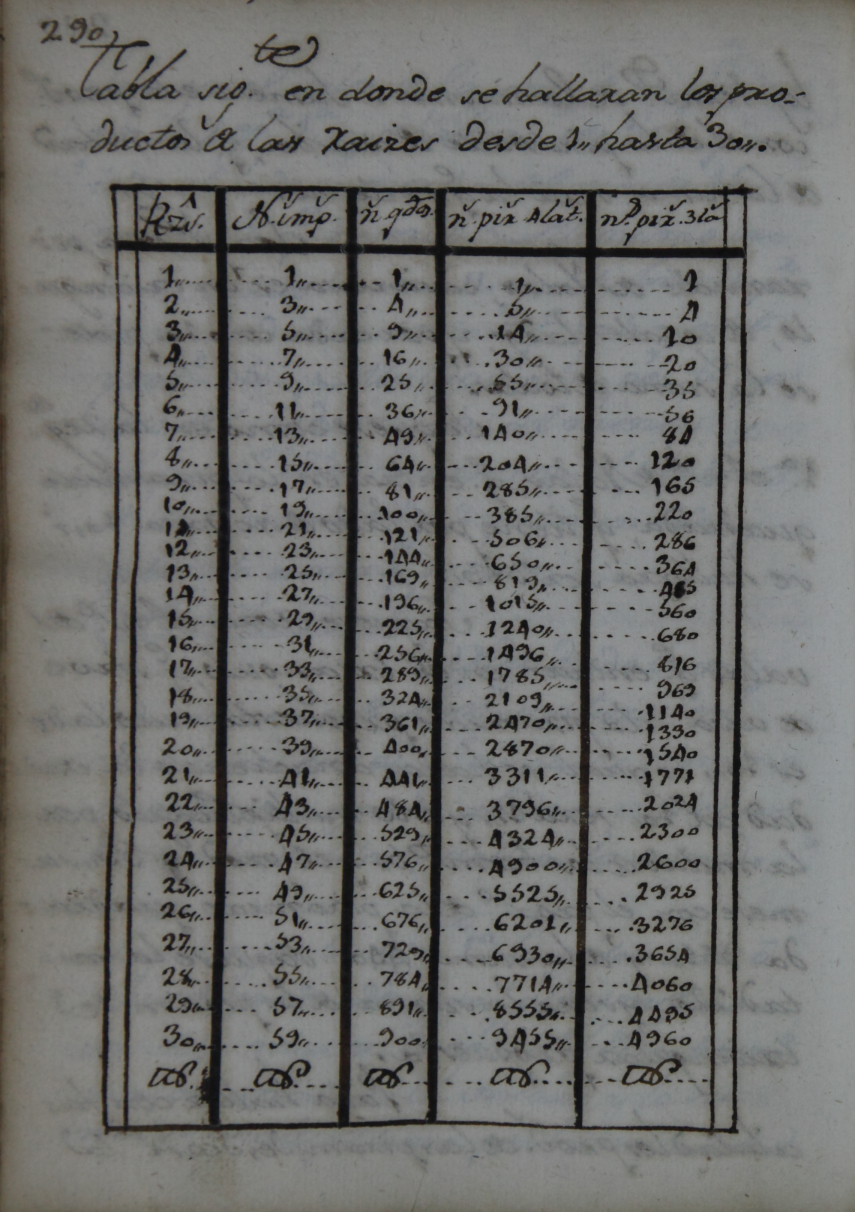 290
Tabla sig.te en donde se hallaran los pro-
ductos de las raizes desde 1,, hasta 30,,.
Rzs. N. imp. n qdos. n pir 4 lat. ns. pir. 3 la
1,, 1,, 1,, 1,, 1
2,, 3,, 4,, 5,, 4
3,, 5,, 9,, 14,, 10
4,, 7,, 16,, 30,, 20
5,, 9,, 25,, 55,, 35
6,, 11,, 36,, 91,, 56
7,, 13,, 49,, 140,, 84
8,, 15,, 64,, 204,, 120
9,, 17,, 81,, 285,, 165
10,, 19,, 100,, 385,, 220
11,, 21,, 121,, 506,, 286
12,, 23,, 144,, 650,, 364
13,, 25,, 169,, 819,,
14,, 27,, 196,, 1015,, 560
15,, 29,, 225,, 1240,, 680
16,, 31,, 256,, 1496,, 816
17,, 33,, 289,, 1785,, 969
18,, 35,, 324,, 2109,, 1140
19,, 37,, 361,, 2470,, 1330
20,, 39,, 400,, 2870,, 1540
21,, 41,, 441,, 3311,, 1771
22,, 43,, 484,, 3796,, 2024
23,, 45,, 529,, 4324,, 2300
24,, 47,, 576,, 4900,, 2600
25,, 49,, 625,, 5525,, 2925
26,, 51,, 676,, 6201,, 3276
27,, 53,, 729,, 6930,, 3654
28,, 55,, 784,, 7714,, 4060
29,, 57,, 891,, 8555,, 4495
30,, 59,, 900,, 9455,, 4960